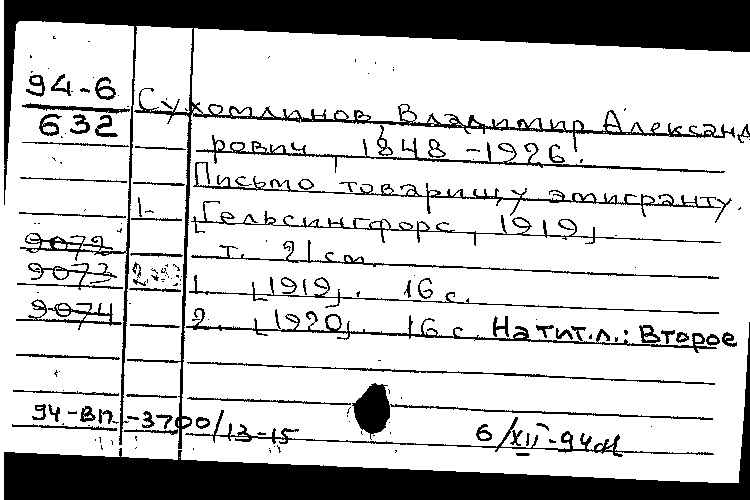 94-6
632
Сухомлинов, Владимир Александ
рович, 1848-1926.
Письмо товарищу эмигранту.
1-
[Гельсингфорс, 1919]
т. 21 см.
9072
9073
9074
1. [1919]. 16 с.
2. [1920]. 16 с. На тит.л.: Второе
94-ВП-3700/13-15
6/XII-94